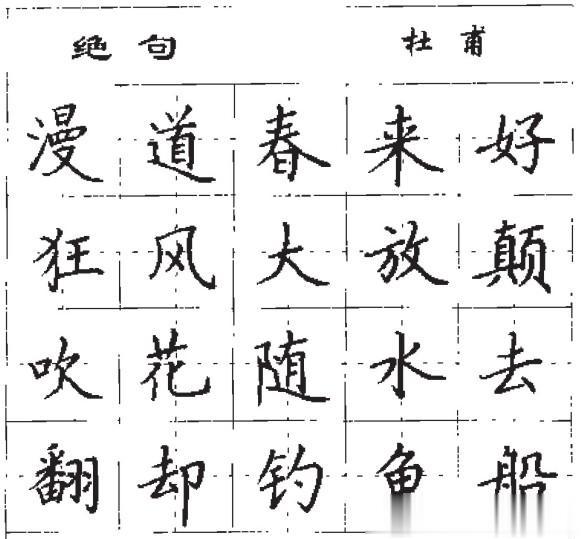 绝句 杜甫
漫道春来好
狂风大放颠
吹花随水去
翻却钓鱼船